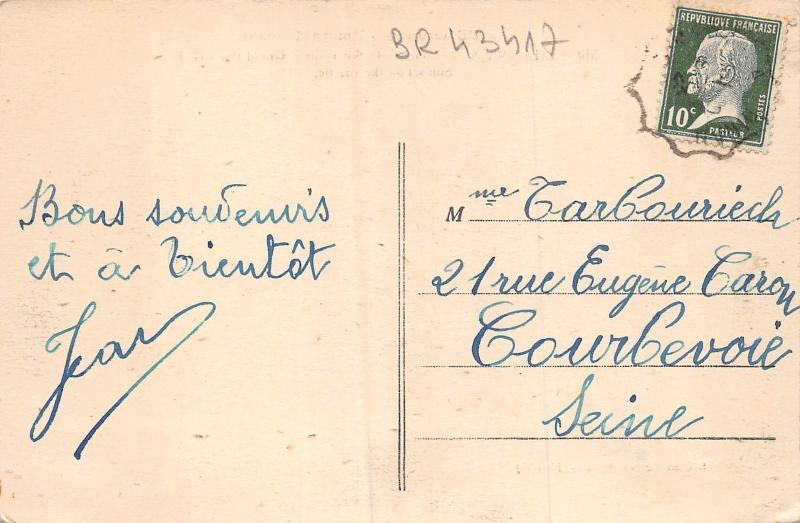 BR 43417
REPVBLIQVE FRANÇAISE
10c
POSTES
PASTEUR
Bons souvenirs
et à bientôt
Jean
Mme Tarbouriech
21 rue Eugène Caron
Courbevoie
Seine